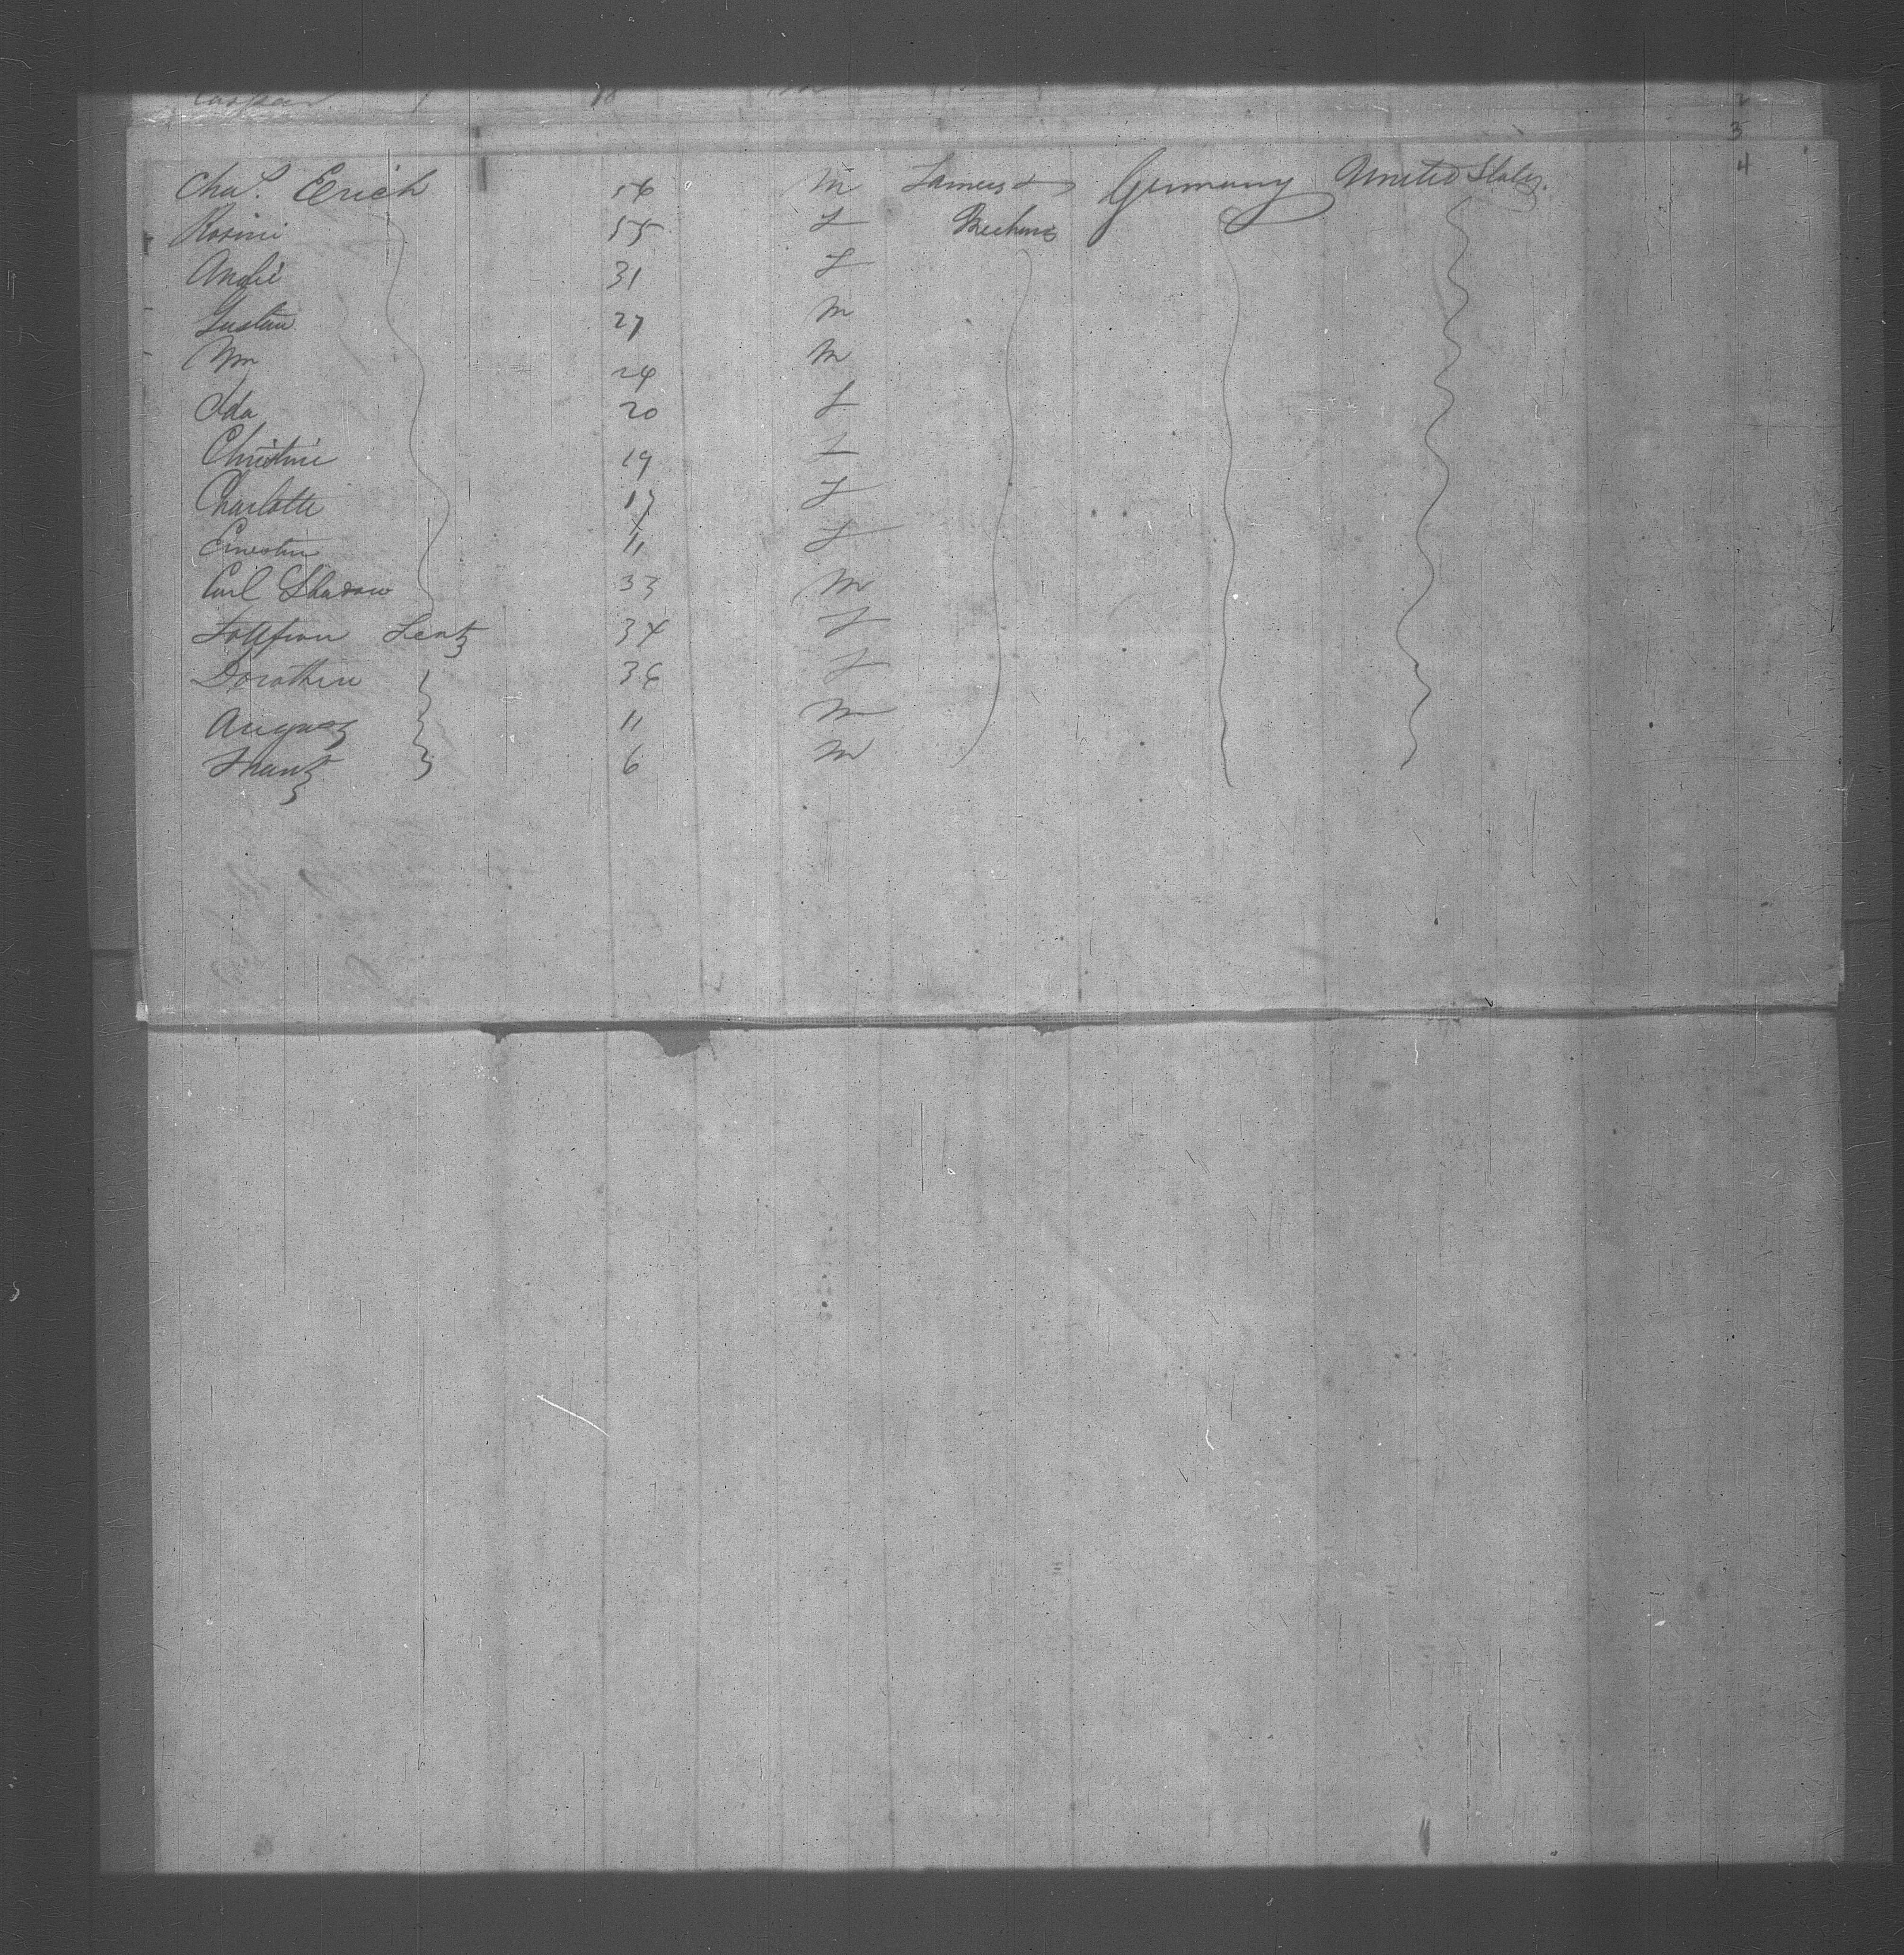 2
3
4
Chas. Erich 56 m Farmers & Germany United States.
Rosine 55 f Mechanics
31 f
Gustav 27 m
Wm 24 m
Ida 20 f
Christine 19 f
Charlotte 17 f
Ernestine 11 f
Carl Shadow 33 m
Lentz 34 f
Dorothea 36 f
August 11 m
Frantz 6 m